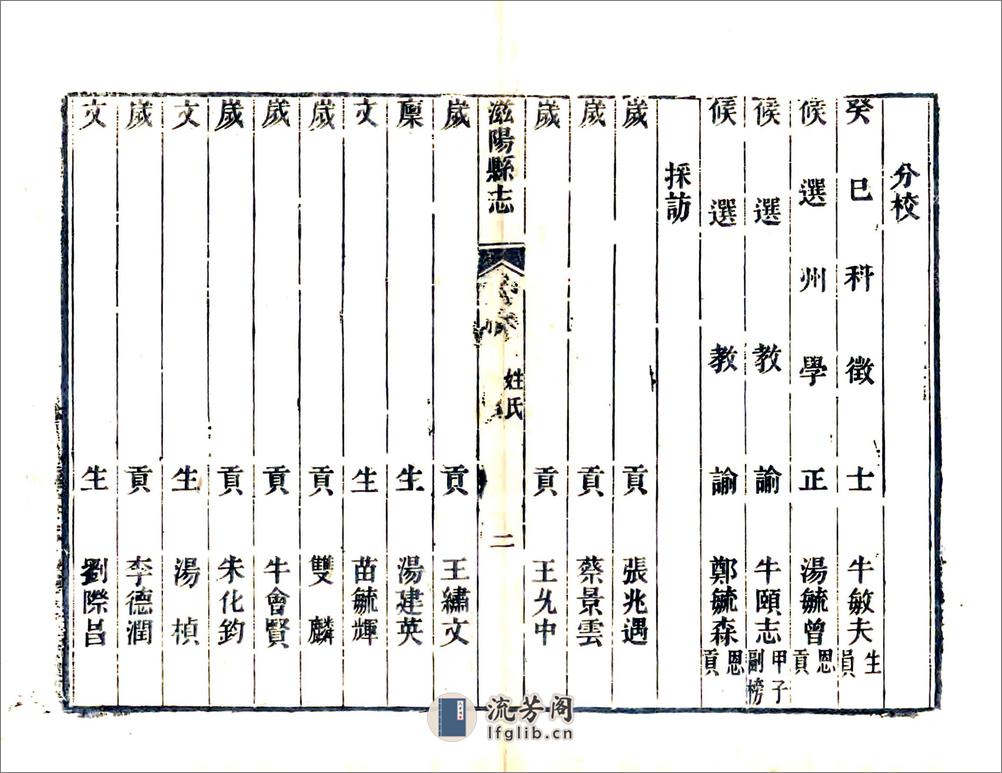 分校
癸巳科徵士牛敏夫生員
候選州學正湯毓曾恩貢
候選教諭牛頤志甲子副榜
候選教諭鄭毓森恩貢
採訪
歲貢張兆遇
歲貢蔡景雲
歲貢王允中
滋陽縣志
姓氏
二
歲貢王繡文
廩生湯建英
文生苗毓輝
歲貢雙麟
歲貢牛會賢
歲貢朱化鈞
文生湯楨
歲貢李德潤
文生劉際昌
流芳阁
lfglib.cn